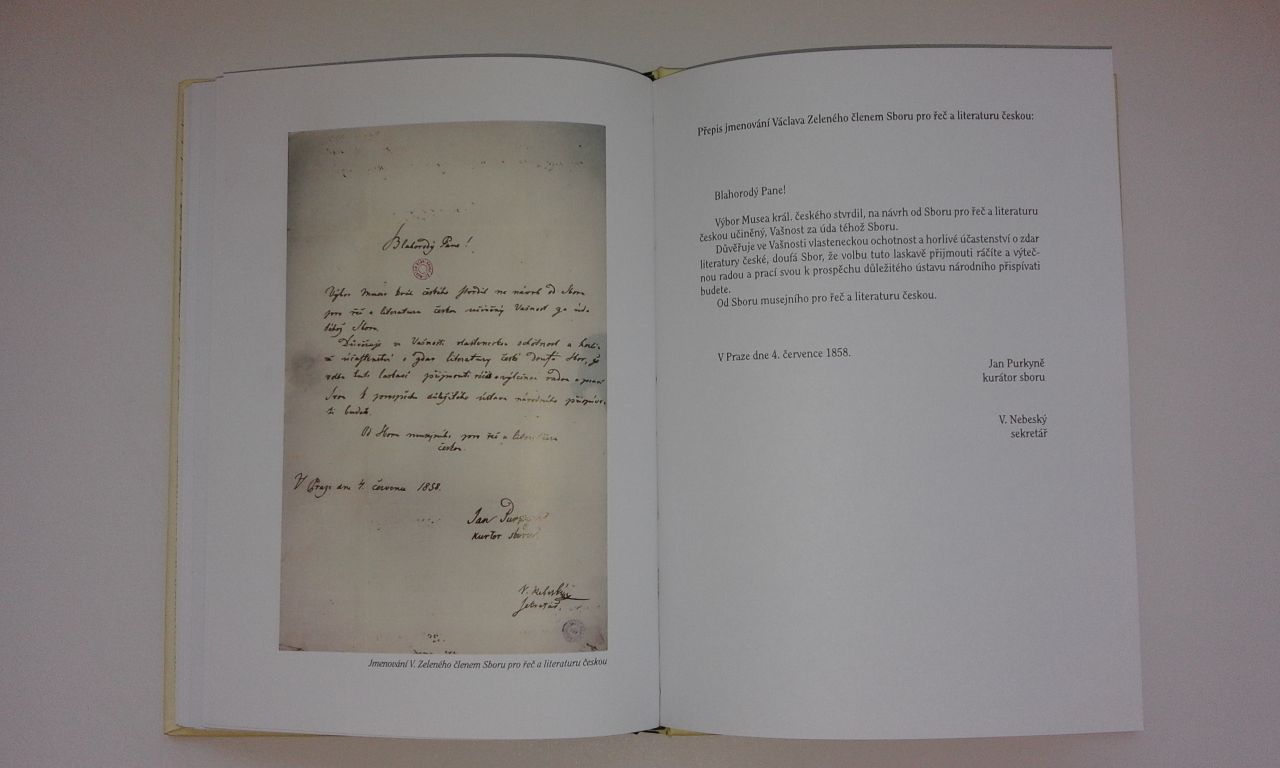 Blahorodý Pane!
Výbor Musea král. českého stvrdil na návrh od Sboru
pro řeč a literaturu českou učiněný Vašnost za úda
téhož Sboru.
Důvěřuje ve Vašnosti vlasteneckou ochotnost a horli-
vé účastenství o zdar literatury české doufá Sbor, že
volbu tuto laskavě přijmouti ráčíte a výtečnou radou a prací
svou k prospěchu důležitého ústavu národního přispíva-
ti budete.
Od Sboru musejního pro řeč a literaturu
českou.
V Praze dne 4. července 1858.
Jan Purkyně
kurátor sboru
V. Nebeský
sekretář
Jmenování V. Zeleného členem Sboru pro řeč a literaturu českou
Přepis jmenování Václava Zeleného členem Sboru pro řeč a literaturu českou:
Blahorodý Pane!
Výbor Musea král. českého stvrdil, na návrh od Sboru pro řeč a literaturu
českou učiněný, Vašnost za úda téhož Sboru.
Důvěřuje ve Vašnosti vlasteneckou ochotnost a horlivé účastenství o zdar
literatury české, doufá Sbor, že volbu tuto laskavě přijmouti ráčíte a výteč-
nou radou a prací svou k prospěchu důležitého ústavu národního přispívati
budete.
Od Sboru musejního pro řeč a literaturu českou.
V Praze dne 4. července 1858.
Jan Purkyně
kurátor sboru
V. Nebeský
sekretář